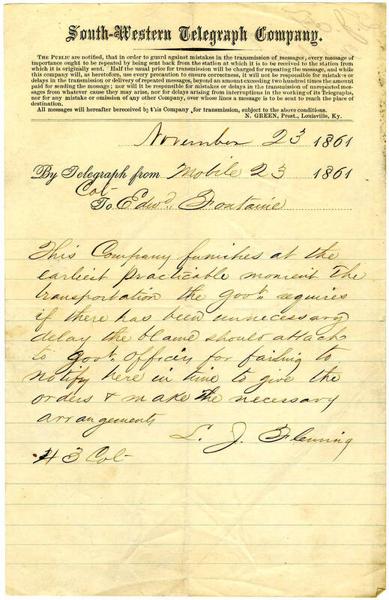 South-Western Telegraph Company.
THE PUBLIC are notified, that in order to guard against mistakes in the transmission of messages, every message of
importance ought to be repeated by being sent back from the station at which it is to be received to the station from
which it is originally sent. Half the usual price for transmission will be charged for repeating the message, and while
this company will, as heretofore, use every precaution to ensure correctness, it will not be responsible for mistakes or
delays in the transmission or delivery of repeated messages, beyond an amount exceeding two hundred times the amount
paid for sending the message; nor will it be responsible for mistakes or delays in the transmission of unrepeated messages
from whatever cause they may arise, nor for delays arising from interruptions in the working of its Telegraphs,
nor for any mistake or omission of any other Company, over whose lines a message is to be sent to reach the place of
destination.
All messages will hereafter be received by this Company for transmission, subject to the above conditions.
N. GREEN, Prest., Louisville, Ky.
November 23 1861
By Telegraph from Mobile 23 1861
Col-
To Edwd. Fontaine
This Company furnishes at the
earliest practicable moment the
transportation the govt. requires
if there has been unnecessary
delay the blame should attach
to govt. officers for failing to
notify here in time to give the
orders & make the necessary
arrangements
L. J. Fleming
43 Col-